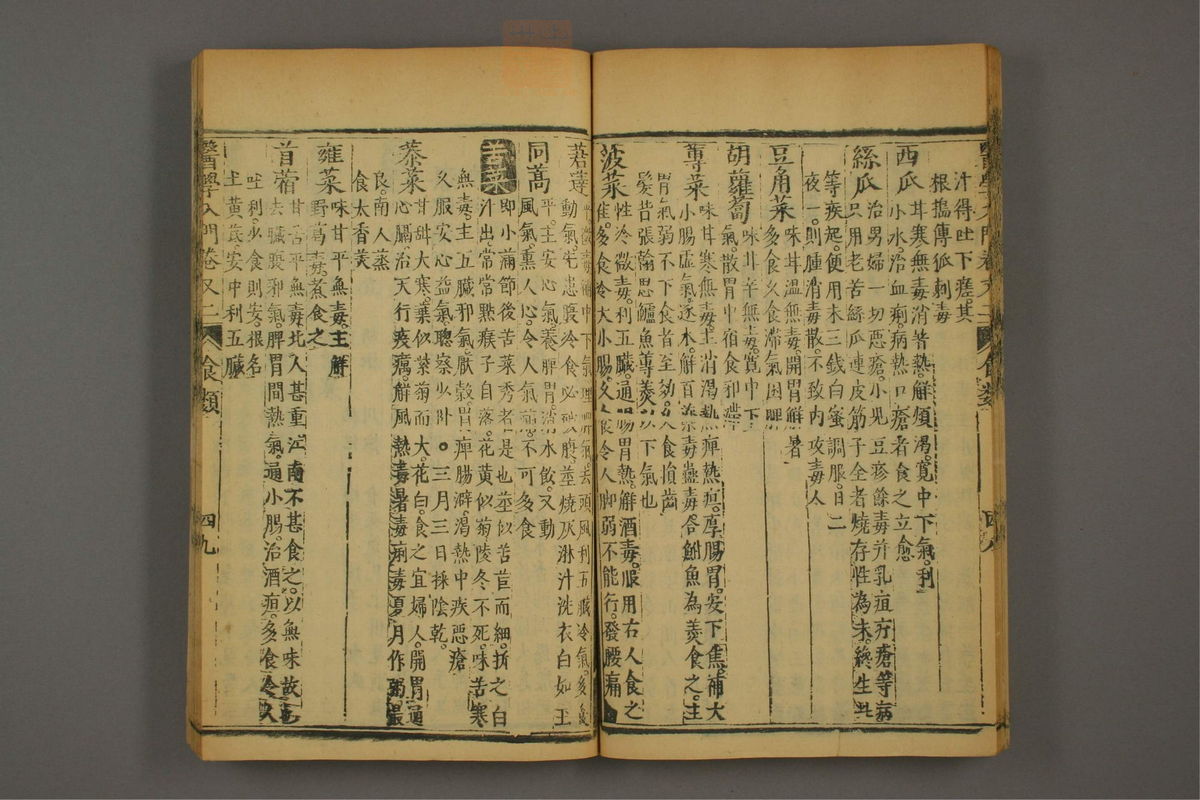 汁得吐下瘥其
根搗傅狐刺毒
西瓜甘寒無毒消暑熱。解煩渴。寬中下氣。利
小水。治血痢。病熱口瘡者食之立愈
絲瓜治男婦一切惡瘡。小兒豆疹餘毒并乳疽疔瘡等病
只用老苦絲瓜連皮筋子全者燒存性為末。終生
等疾起。便用末三錢白蜜調服。日二
夜一。則腫消毒散。不致內攻毒人
豆角菜味甘溫無毒開胃解暑
多食久食滯氣困脾
胡蘿蔔味甘辛無毒寬中下
氣。散胃中宿食邪滯
蓴菜味甘寒無毒主消渴熱痺熱疸。厚腸胃。安下焦。補大
小腸虛氣。逐水。解百藥毒蠱毒。合鮒魚為羹食之。主
胃氣弱不下食者至効。久食損齒
髮昔張翰思鱸魚蓴羹以下氣也
菠菜性冷微毒。利五臟。通腸胃熱。解酒毒。服用石人食之
佳。多食冷大小腸。久食令人脚弱不能行。發腰痛
醫學入門卷之二 食類 四八
莙薘平微毒補中下氣理脾氣去頭風利五臟冷氣。多食
動氣。先患腹冷食必破腹莖燒灰淋汁洗衣白如玉
同蒿平。主安心氣。養脾胃。消水飲。又動
風氣。熏人心。令人氣滿。不可多食
苦菜即小滿節後苦菜秀者是也。莖似苦苣而細。折之白
汁出。常常點瘊子自落。花黃似菊。陵冬不死。味苦寒
無毒。主五臟邪氣。厭穀胃痺腸澼。渴熱中疾惡瘡
久服安心益氣聰察少卧。三月三日採陰乾。
菾菜甘甜大寒。葉似紫菊而大。花白。食之宜婦人。開胃通
心膈。治天行疫癘解風熱毒暑毒痢毒夏月作粥最
良。南人蒸
食太香美
雍菜味甘平無毒。主解
野葛毒。煮食之
苜蓿甘苦平無毒。北人甚重江南不甚食之。以無味故也
去臟腹邪氣。脾胃間熱氣。通小腸。治酒疸。多食冷人
吐利。少食則安。根名
土黃芪安中利五臟
醫學入門卷又二 食類 四九